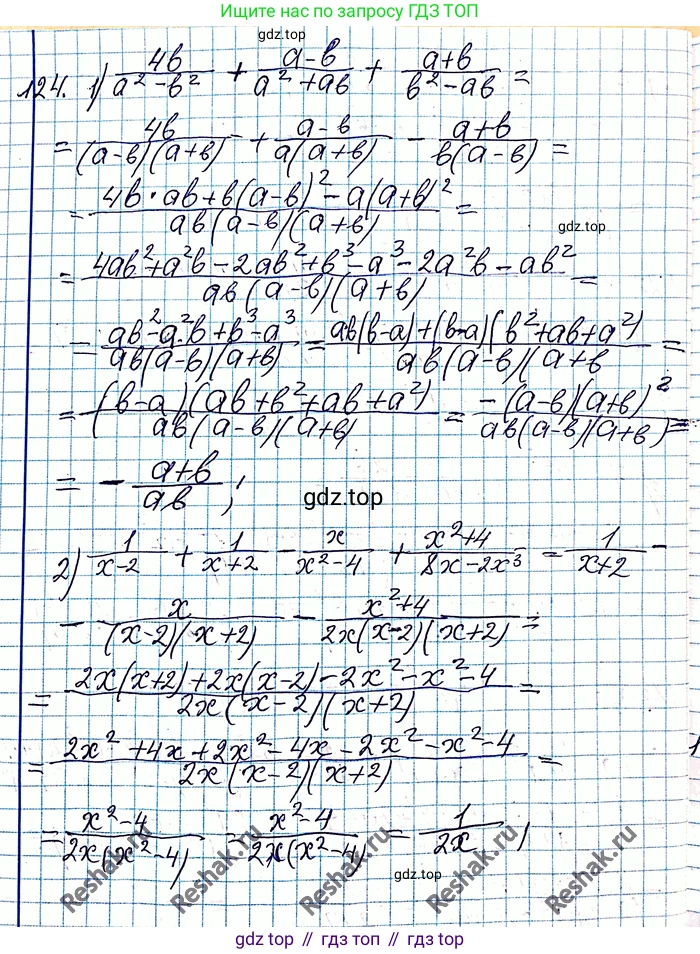 Ищите нас по запросу ГДЗ ТОП
gdz.top
124. 1) 4в/(a² - в²) + (a-в)/(a² + aв) + (a+в)/(в² - aв) =
= 4в/((a-в)(a+в)) + (a-в)/(a(a+в)) - (a+в)/(в(a-в)) =
= (4в·aв + в(a-в)² - a(a+в)²)/(aв(a-в)(a+в)) =
gdz.top
= (4aв² + a²в - 2aв² + в³ - a³ - 2a²в - aв²)/(aв(a-в)(a+в)) =
= (aв² - a²в + в³ - a³)/(aв(a-в)(a+в)) = (aв(в-a) + (в-a)(в² + aв + a²))/(aв(a-в)(a+в =
= ((в-a)(aв + в² + aв + a²))/(aв(a-в)(a+в)) = (-(a-в)(a+в)²)/(aв(a-в)(a+в)) =
= - (a+в)/(aв);
gdz.top
2) 1/(x-2) + 1/(x+2) - x/(x²-4) + (x²+4)/(8x-2x³) = 1/(x+2) -
- x/((x-2)(x+2)) - (x²+4)/(2x(x-2)(x+2)) =
= (2x(x+2) + 2x(x-2) - 2x² - x² - 4)/(2x(x-2)(x+2)) =
= (2x² + 4x + 2x² - 4x - 2x² - x² - 4)/(2x(x-2)(x+2)) =
= (x²-4)/(2x(x²-4)) = (x²-4)/(2x(x²-4)) = 1/(2x);
Reshak.ru Reshak.ru Reshak.ru Reshak.ru Reshak.ru
gdz.top
gdz top // гдз топ // gdz.top